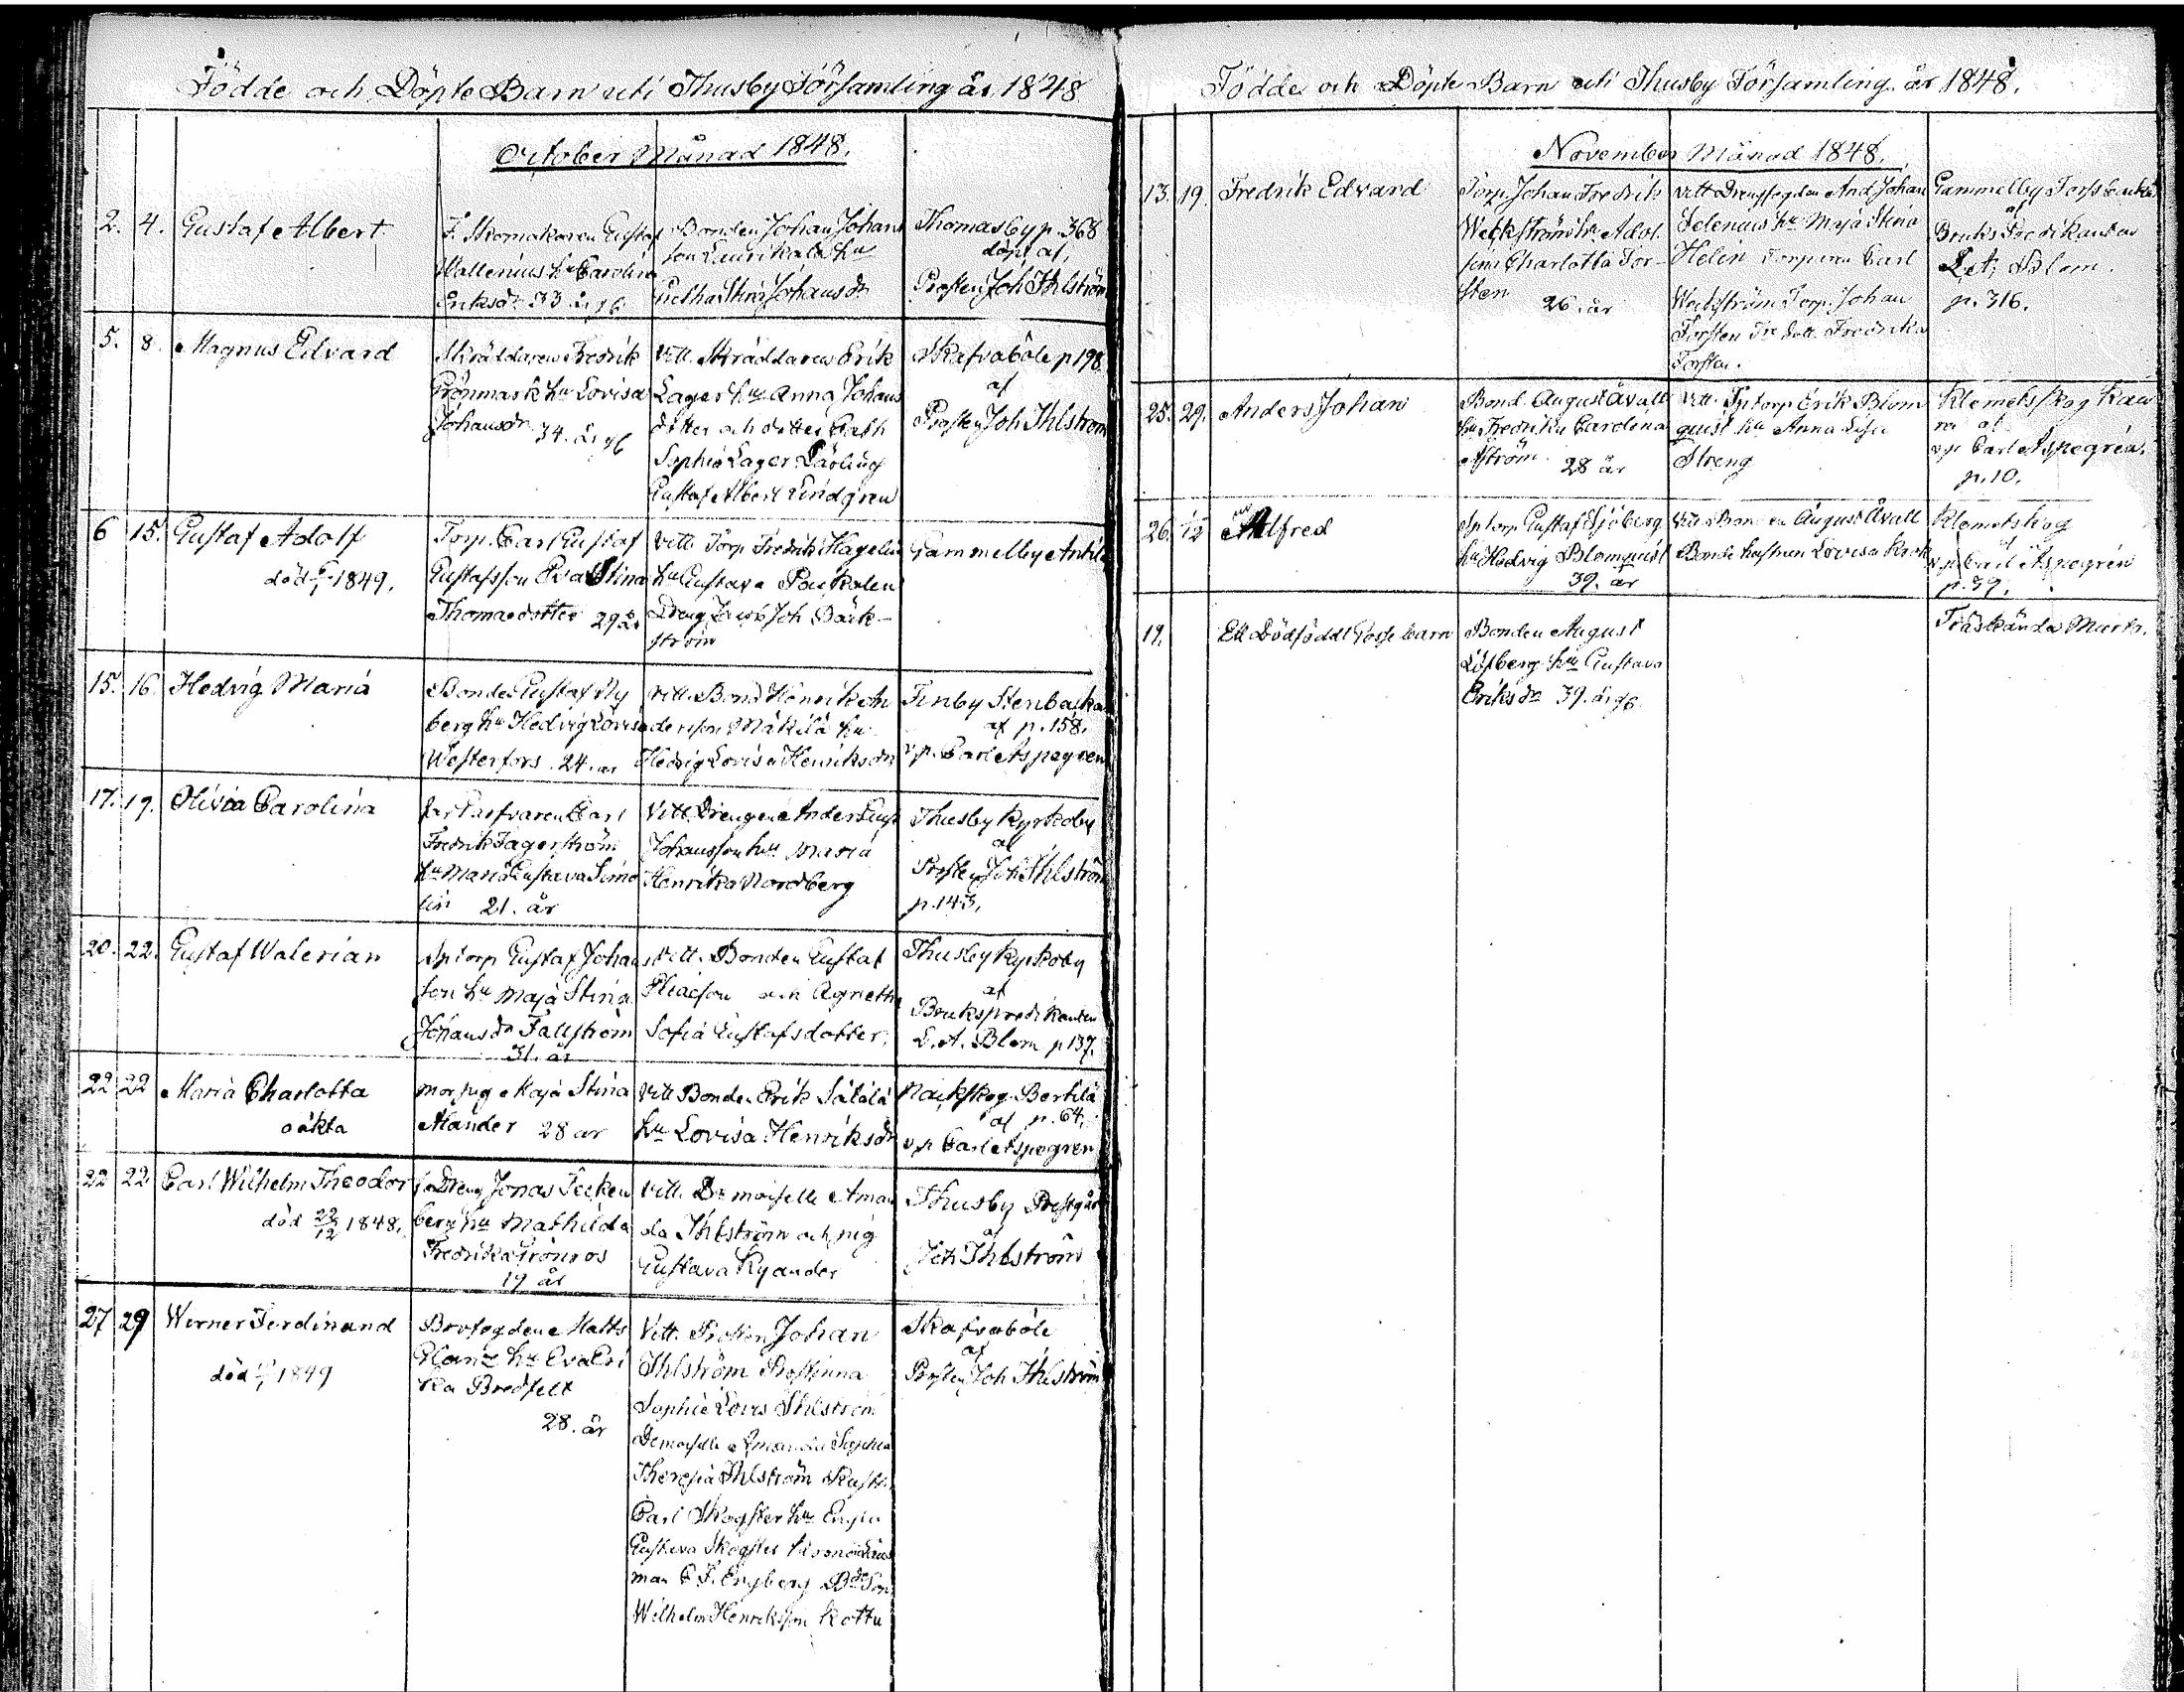 Födde och Döpte Barn uti Thusby Församling år 1848
October Månad 1848.
2. 4. Gustaf Albert
F. Skomakaren Gustaf
Wallenius hu Carolina
Eriksdr 33 år g6
Bonden Johan Johans
son Laurikala hu
Stina Johansdr
Thomasby p. 368
döpt af,
Prosten Joh Ihlström
5. 8. Magnus Edvard
Skräddaren Fredrik
Grönmark hu Lovisa
Johansdr 34. år g6
Vitt. Skräddaren Erik
Lager hu Anna Johans
dotter och dotter Cath
Sophia Lager Lärling
Gustaf Albert Lindgren
Skafvaböle p 198
af
Prosten Joh Ihlström
6 15. Gustaf Adolf
död 1849.
Torp. Carl Gustaf
Gustafsson Eva Stina
Thomasdotter 29 år
Vitt. Torp Fredrik Hagelin
hu Gustava
Dreng Joh Bäck-
ström
Gammelby Anttila
15. 16. Hedvig Maria
Bonden Gustaf Ny
berg hu Hedvig Lovisa
Westerfors. 24. år
Vitt. Bond Henrik An
dersson Mäkilä hu
Hedvig Lovisa Henriksdr
Finby Stenbacka
af p. 158.
v.p. Carl Aspegren
17. 19. Olivia Carolina
Carl
Fredrik Fagerström
hu Maria Gustava Simo
lin 21. år
Vitt. Drengen Anders Gust
Johansson hu Maria
Henrika Nordberg
Thusby Kyrkoby
af
Prosten Joh Ihlström
p. 143,
20. 22. Gustaf Walerian
Sptorp Gustaf Johans
son hu Maja Stina
Johansdr Fallström
31. år
Vitt. Bonden Gustaf
Eliasson och Agnetha
Sofia Gustafsdotter.
Thusby Kyrkoby
af
Brukspredikanten
L. A. Blom p 137.
22 22 Maria Charlotta
oäkta
mor pig Maja Stina
Alander 28 år
Vitt Bonden Erik Sälälä
hu Lovisa Henriksdr
Nackskog Bertilä
af p. 64,
v.p Carl Aspegren
22 22 Carl Wilhelm Theodor
död 22/12 1848.
f. Dreng Jonas Tecken
berg hu Mathilda
Fredrika Grönros
19 år
Vitt. Demoiselle Aman
da Ihlström och pig
Gustava Kyander
Thusby Prestgår
af
Joh Ihlström
27 29 Werner Ferdinand
död 1849
Brofogden Matts
Glanz hu Eva Eri
ka Bredfelt
28. år
Vitt. Prosten Johan
Ihlström Prostinna
Sophie Lovis Ihlström
Demoiselle Amanda Sophia
Theresia Ihlström
Carl Skogster hu
Gustava Skogster
man C F. Engberg
Wilhelm Henriksson Kotta
Skafvaböle
af
Prosten Joh Ihlström
Födde och Döpte Barn uti Thusby Församling år 1848.
November Månad 1848.
13. 19. Fredrik Edvard
Torp. Johan Fredrik
Weckström hu Adol
fina Charlotta For-
sten 26. år
Vitt Drengfogden And Johan
Selenius hu Maja Stina
Helin Torparen Carl
Weckström Torp. Johan
Forsten Dr Dott. Fredrika
Forsten.
Gammelby Forsbacka
af
Bruks Predikanten
L. A. Blom.
p. 316.
25. 29. Anders Johan
Bond. August Åvall
hu Fredrika Carolina
Åström. 28 år
Vitt. Sptorp Erik Blom
quist hu Anna Lisa
Streng
Klemetskog
af
v.p Carl Aspegrén.
p. 10.
26. 1/12 Alfred
Sptorp Gustaf Sjöberg
hu Hedvig Blomquist
39. år
Vitt Bonden August Åvall
Bonde hustrun Lovisa Krok
Klemetskog
af
v.p Carl Aspegrén
p. 39.
19. Ett Dödföddt Gosse barn
Bonden August
Löfberg hu Gustava
Eriksdr 39. år g6.
Träskända Mart.